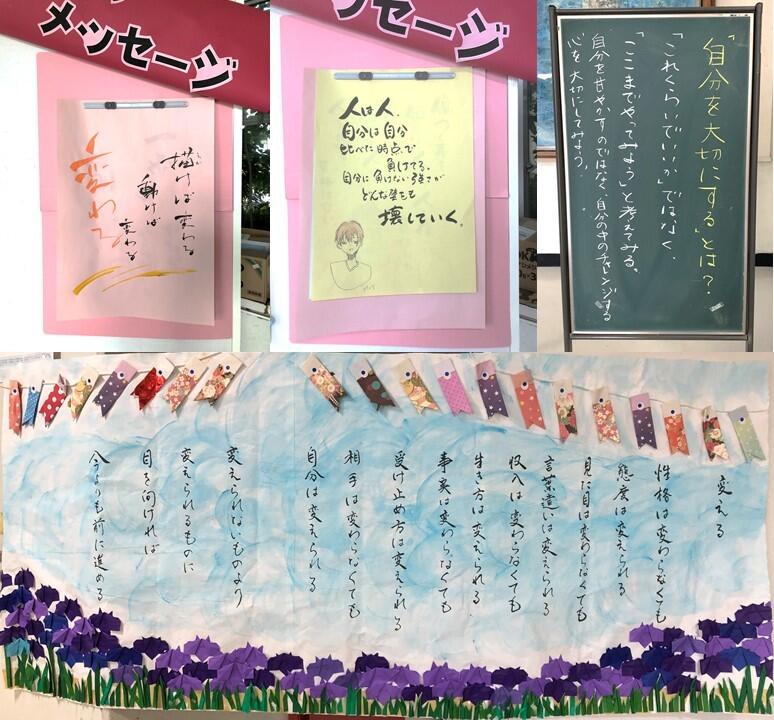 メッセージ
描けば変わる
動けば
変わる
変わる
メッセージ
人は人、
自分は自分
比べた時点で
負けてる。
自分に負けない強さが
どんな壁をも
壊していく。
「自分を大切にする」とは?
「これくらいでいいか」ではなく、
「ここまでやってみよう」と考えてみる。
自分を甘やかすのではなく、自分の中のチャレンジする
心を大切にしてみよう。
変える
性格は変わらなくても
態度は変えられる
見た目は変わらなくても
言葉遣いは変えられる
収入は変わらなくても
生き方は変えられる
事実は変わらなくても
受け止め方は変えられる
相手は変わらなくても
自分は変えられる
変えられないものより
変えられるものに
目を向ければ
今よりも前に進める